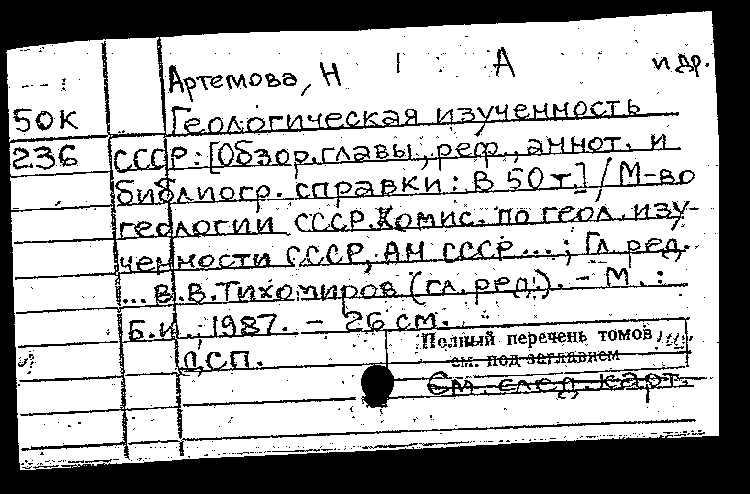 Артемова, Н А и др.
50К Геологическая изученность
236 СССР: [Обзор. главы, реф., аннот. и
библиогр. справки: В 50 т.] / М-во
геологии СССР. Комис. по геол. изу-
ченности СССР, АН СССР ...; Гл. ред.
... В. В. Тихомиров (гл. ред.). - М. :
Б.и., 1987. - 26 см.
Полный перечень томов
ДСП.
см. под заглавием
См. след. карт.